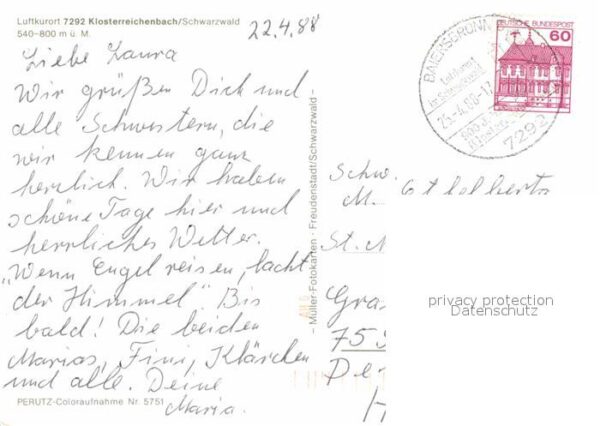 Luftkurort 7292 Klosterreichenbach/Schwarzwald
540–800 m ü. M.
22.4.88
Liebe Laura
Wir grüßen Dich und
alle Schwestern, die
wir kennen ganz
herzlich. Wir haben
schöne Tage hier und
herrliches Wetter.
„Wenn Engel reisen, lacht
der Himmel" Bis
bald! Die beiden
Marias, Fini, Klärchen
und alle. Deine
Maria.
PERUTZ-Coloraufnahme Nr. 5751
– Müller-Fotokarten · Freudenstadt/Schwarzwald –
DEUTSCHE BUNDESPOST
60
BAIERSBRONN
7292
Schw.
M.
St. M
Gra
75
De
privacy protection
Datenschutz